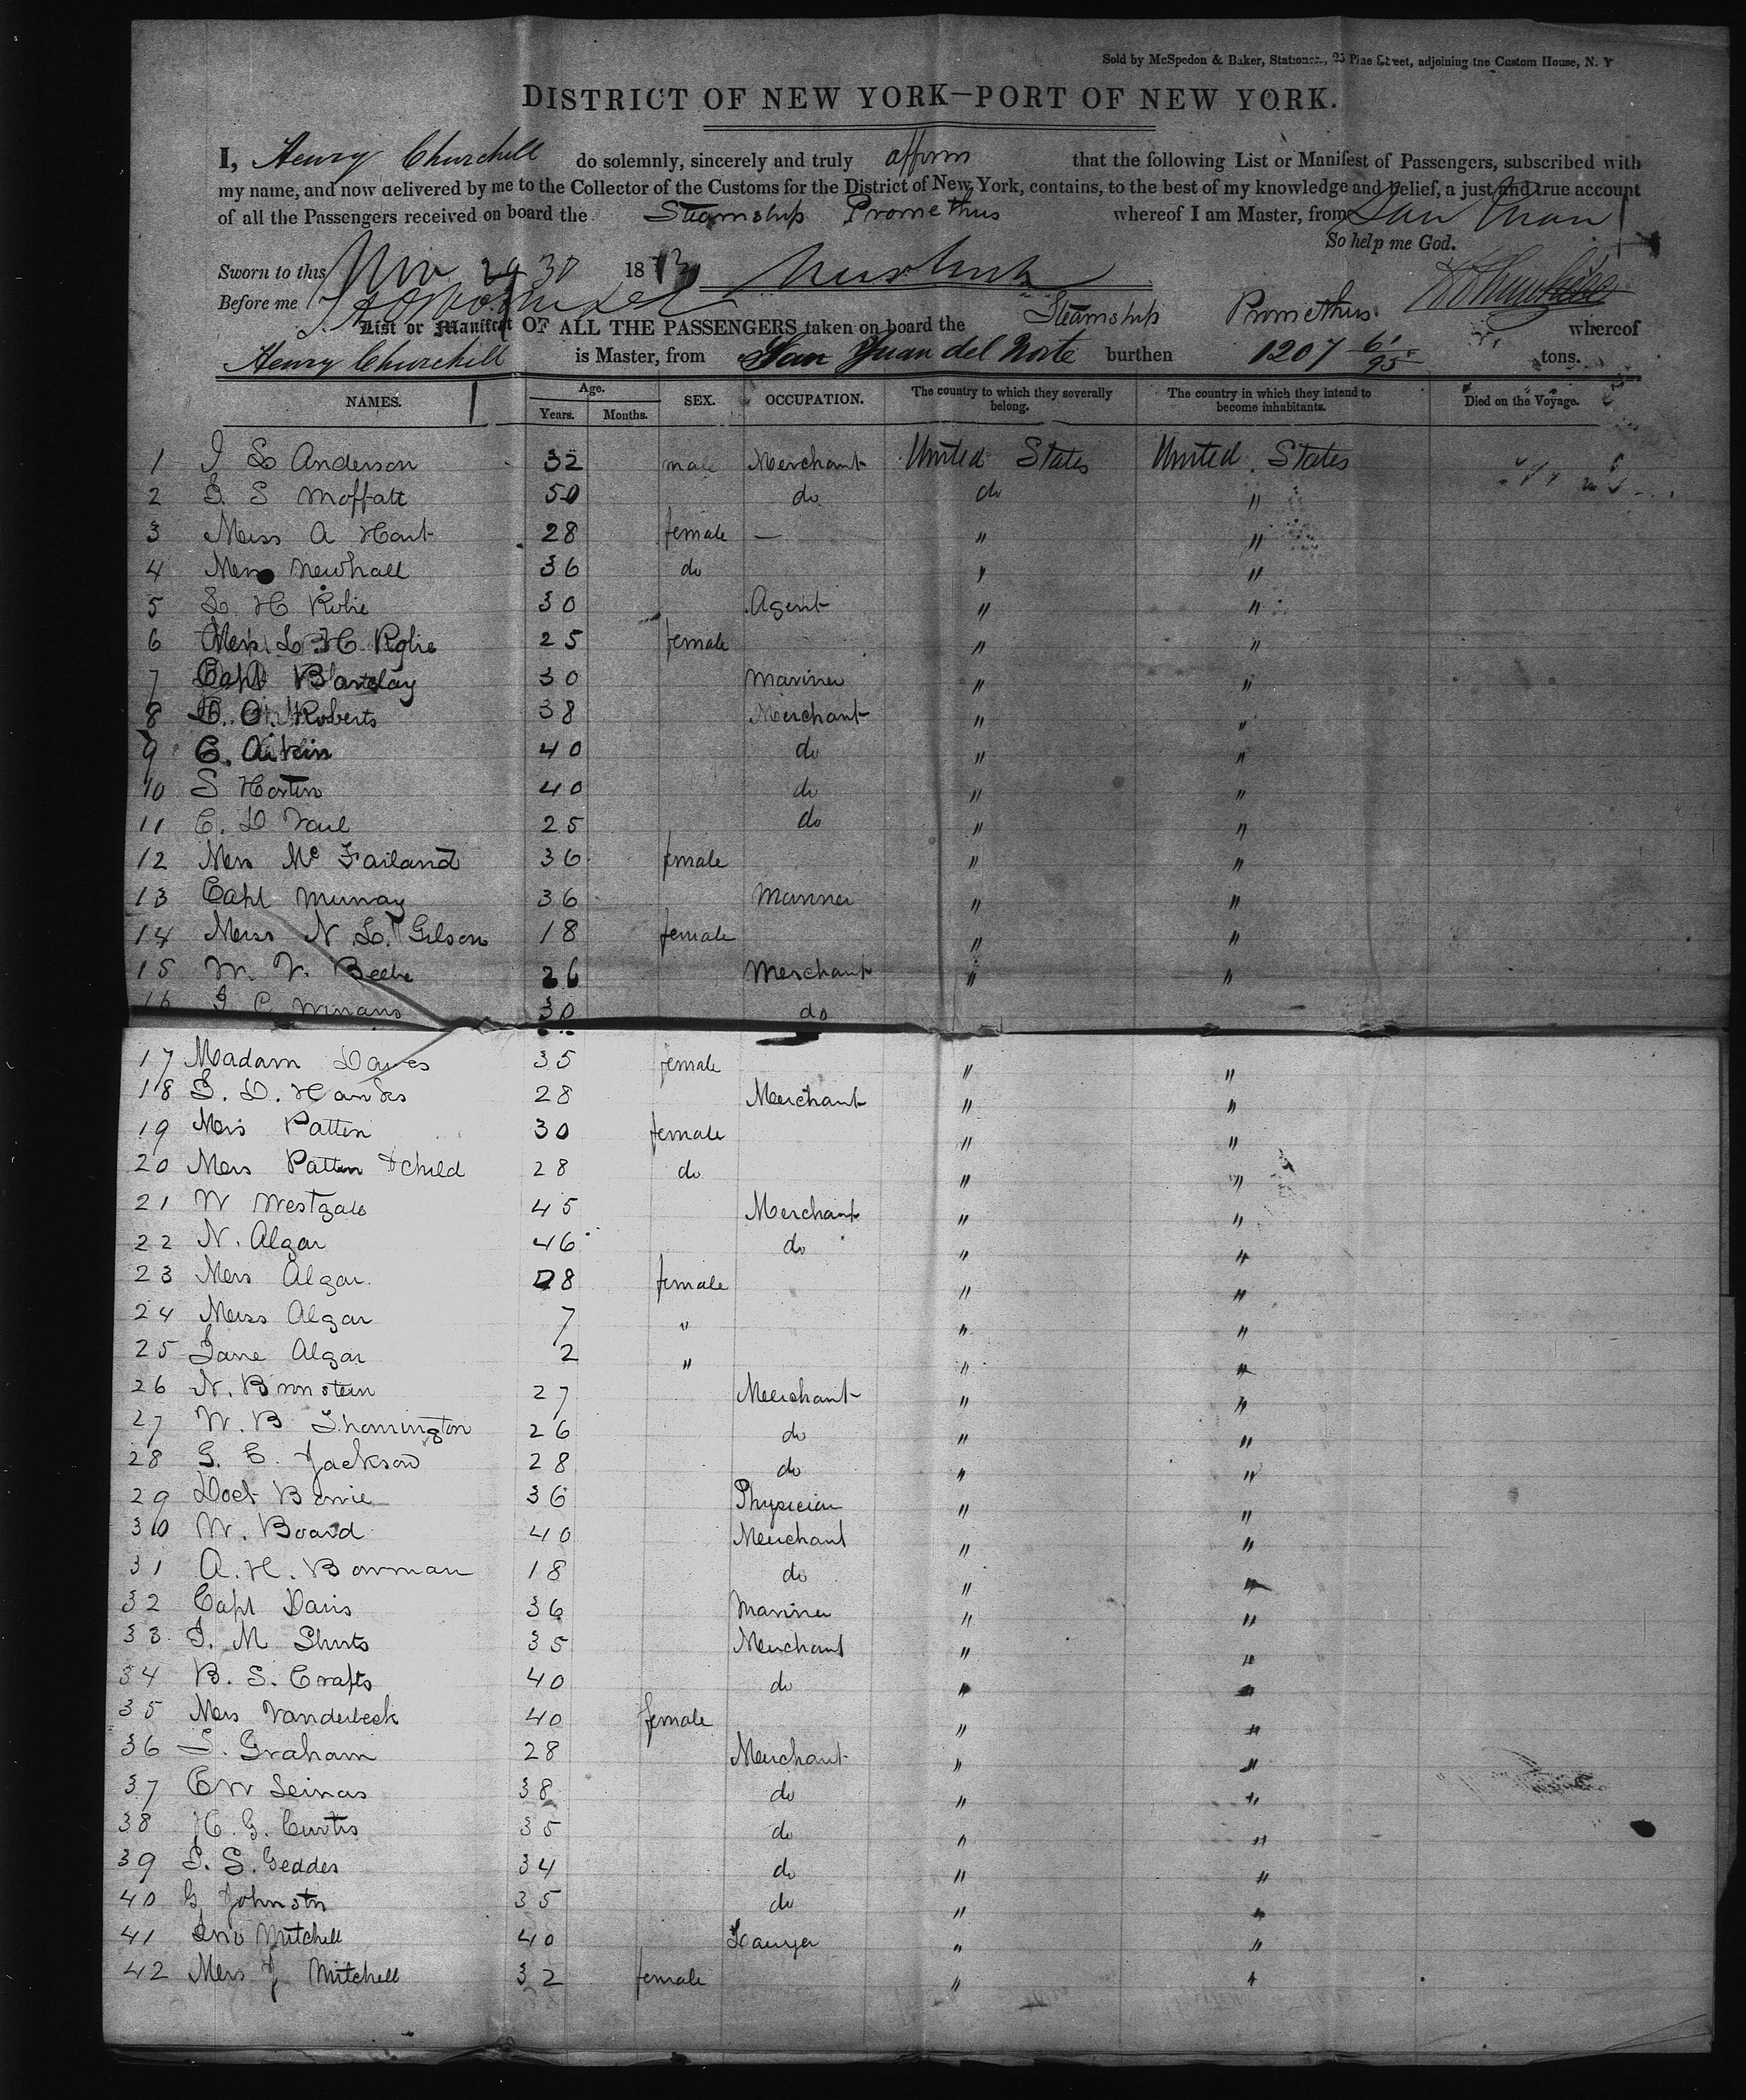 Sold by McSpedon & Baker, Stationers, 25 Pine Street, adjoining the Custom House, N. Y
DISTRICT OF NEW YORK—PORT OF NEW YORK.
I, Henry Churchill do solemnly, sincerely and truly affirm that the following List or Manifest of Passengers, subscribed with
my name, and now delivered by me to the Collector of the Customs for the District of New York, contains, to the best of my knowledge and belief, a just and true account
of all the Passengers received on board the Steamship Promethus whereof I am Master, from San Juan
So help me God.
Sworn to this Nov 30 18
Before me
List or Manifest OF ALL THE PASSENGERS taken on board the Steamship Promethus whereof
Henry Churchill is Master, from San Juan del Norte burthen 1207 61/95 tons.
NAMES. Age. Years. Months. SEX. OCCUPATION. The country to which they severally belong. The country in which they intend to become inhabitants. Died on the Voyage.
1 J L Anderson 32 male Merchant United States United States
2 J. S Moffatt 50 do do "
3 Miss A Hart 28 female — " "
4 Mrs Newhall 36 do " "
5 L. H Robie 30 Agent " "
6 Mrs L. H Robie 25 female " "
7 Capt Barclay 30 Mariner " "
8 Roberts 38 Merchant " "
9 C. Aitkin 40 do " "
10 S Horten 40 do " "
11 C. D Vail 25 do " "
12 Mrs Mc Failand 36 female " "
13 Capt Murray 36 Mariner " "
14 Miss N. L. Gilson 18 female " "
15 W. V. Beebe 26 Merchant " "
16 J C Winans 30 do
17 Madam Davies 35 female " "
18 J. D. Hawks 28 Merchant " "
19 Mrs Patten 30 female " "
20 Mrs Patten & child 28 do " "
21 W Westgate 45 Merchant " "
22 N. Algar 46 do " "
23 Mrs Algar 28 female " "
24 Miss Algar 7 " " "
25 Jane Algar 2 " " "
26 N. Brnstein 27 Merchant " "
27 W. B Thornington 26 do " "
28 G. C. Jackson 28 do " "
29 Doct Bowie 36 Physician " "
30 W. Board 40 Merchant " "
31 A. H. Bowman 18 do " "
32 Capt Davis 36 Mariner " "
33 J. M Shuts 35 Merchant " "
34 B. S. Crafts 40 do " "
35 Mrs Vanderbeck 40 female " "
36 S. Graham 28 Merchant " "
37 C W Seinas 38 do " "
38 H. G. Curtis 35 do " "
39 J. S. Geddes 34 do " "
40 G Johnstn 35 do " "
41 Jno Mitchell 40 Lawyer " "
42 Mrs J Mitchell 32 female " "